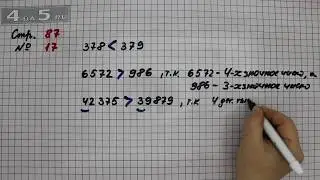 4 a 5
Стр. 87
№ 17
378 < 379
6572 > 986, т.к. 6572 - 4-х значное число, а
986 - 3-х значное число
42375 > 39879, т.к 4 дес. тыс